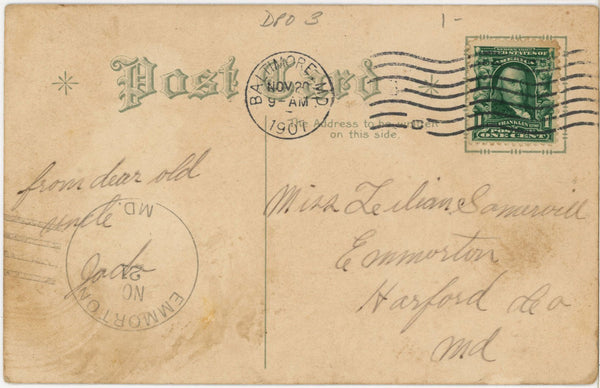 DPO 3
1-
Post Card
BALTIMORE, MD.
NOV 20
9-AM
1907
The Address to be written
on this side.
C
UNITED STATES OF
AMERICA
FRANKLIN
1 1
POSTAGE
ONE CENT
from dear old
uncle
Miss Leilian Somervill
Emmorton
Harford Co
Md
EMMORTON
MD.
NO
21